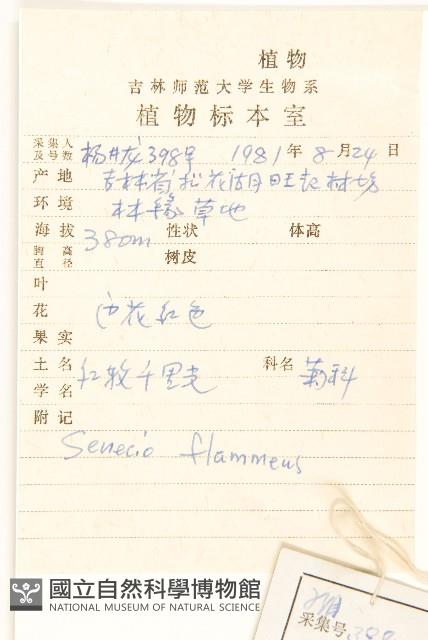 植物
吉林师范大学生物系
植物标本室
采集人及号数 杨井龙 398号 1981年8月24日
产地 吉林省松花湖旺起林场
环境 林缘草地
海拔 380m 性状 体高
胸高直径 树皮
叶
花 边花红色
果实
土名 红轮千里光 科名 菊科
学名
附记
Senecio flammeus
采集号 398
國立自然科學博物館
NATIONAL MUSEUM OF NATURAL SCIENCE